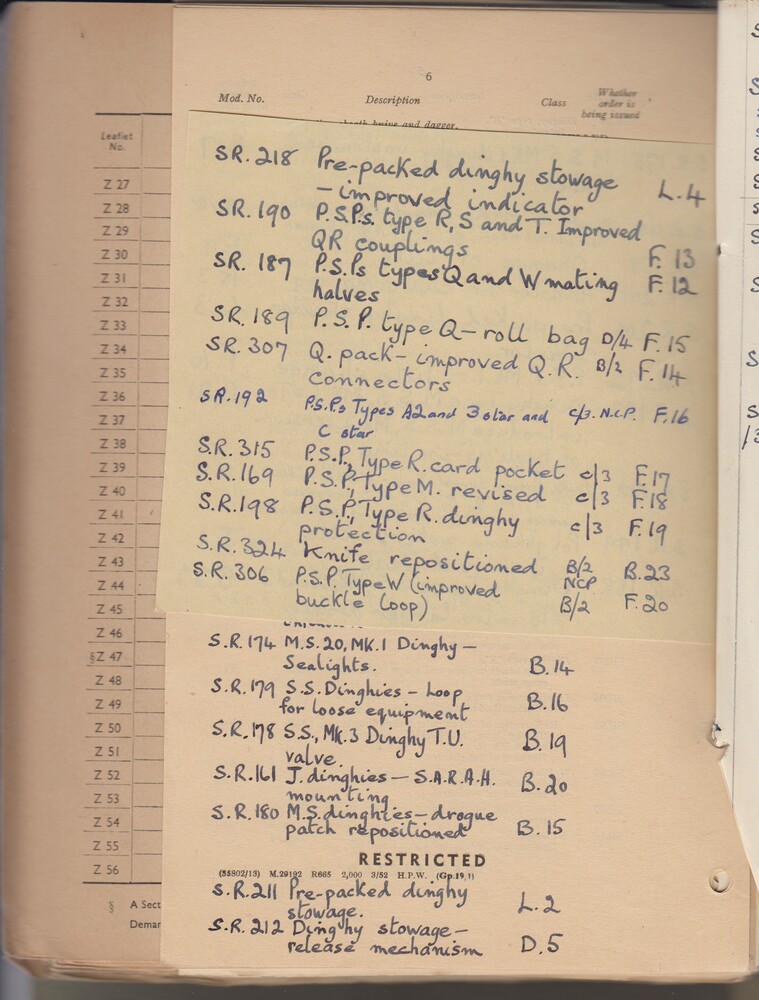 6
Mod. No. Description Class Whether order is being issued
knife and dagger.
SR. 218 Pre-packed dinghy stowage
– improved indicator L.4
SR. 190 P.S.Ps. type R, S and T. Improved
QR couplings F. 13
SR. 187 P.S.Ps types Q and W mating F. 12
halves
SR. 189 P.S.P. type Q – roll bag D/4 F. 15
SR. 307 Q. pack – improved Q.R. B/2 F. 14
connectors
SR. 192 P.S.Ps Types A2 and 3 star and c/3. N.C.P. F.16
C star
S.R. 315 P.S.P. Type R. card pocket c/3 F.17
S.R. 169 P.S.P. Type M. revised c/3 F.18
S.R. 198 P.S.P. Type R. dinghy c/3 F.19
protection
S.R. 324 Knife repositioned B/2 B.23
NCP
S.R. 306 P.S.P. Type W (improved
buckle loop) B/2 F.20
S.R. 174 M.S. 20, MK. 1 Dinghy –
Sealights. B. 14
S.R. 179 S.S. Dinghies – Loop
for loose equipment B. 16
S.R. 178 S.S., Mk. 3 Dinghy T.U. B. 19
valve.
S.R. 161 J. dinghies – S.A.R.A.H. B. 20
mounting
S.R. 180 M.S. dinghies – drogue
patch repositioned B. 15
RESTRICTED
(35802/13) M.29192 R665 2,000 3/52 H.P.W. (Gp.19.1)
S.R. 211 Pre-packed dinghy
stowage. L.2
S.R. 212 Dinghy stowage –
release mechanism D.5
Leaflet
No.
Z 27
Z 28
Z 29
Z 30
Z 31
Z 32
Z 33
Z 34
Z 35
Z 36
Z 37
Z 38
Z 39
Z 40
Z 41
Z 42
Z 43
Z 44
Z 45
Z 46
§Z 47
Z 48
Z 49
Z 50
Z 51
Z 52
Z 53
Z 54
Z 55
Z 56
§ A Sect
Demar